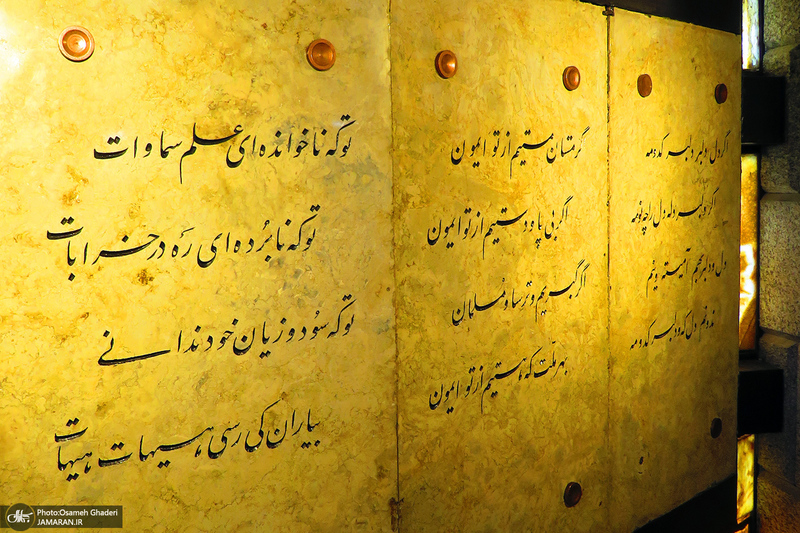 اگر دل دلبر و دلبر کدومه
اگر دلبر دل و دل را چه نومه
دل و دلبر بهم آمیته وینم
ندونم دل که و دلبر کدومه
گر مستان مستیم از تو ایمون
اگر بی پا و دستیم از تو ایمون
اگر گبریم و ترسا و مسلمان
بهر ملت که هستیم از تو ایمون
تو که ناخوانده ای علم سماوات
تو که نابرده ای ره در خرابات
تو که سود و زیان خود ندانی
بیاران کی رسی هیهات هیهات
Photo:Osameh Ghaderi
JAMARAN.IR